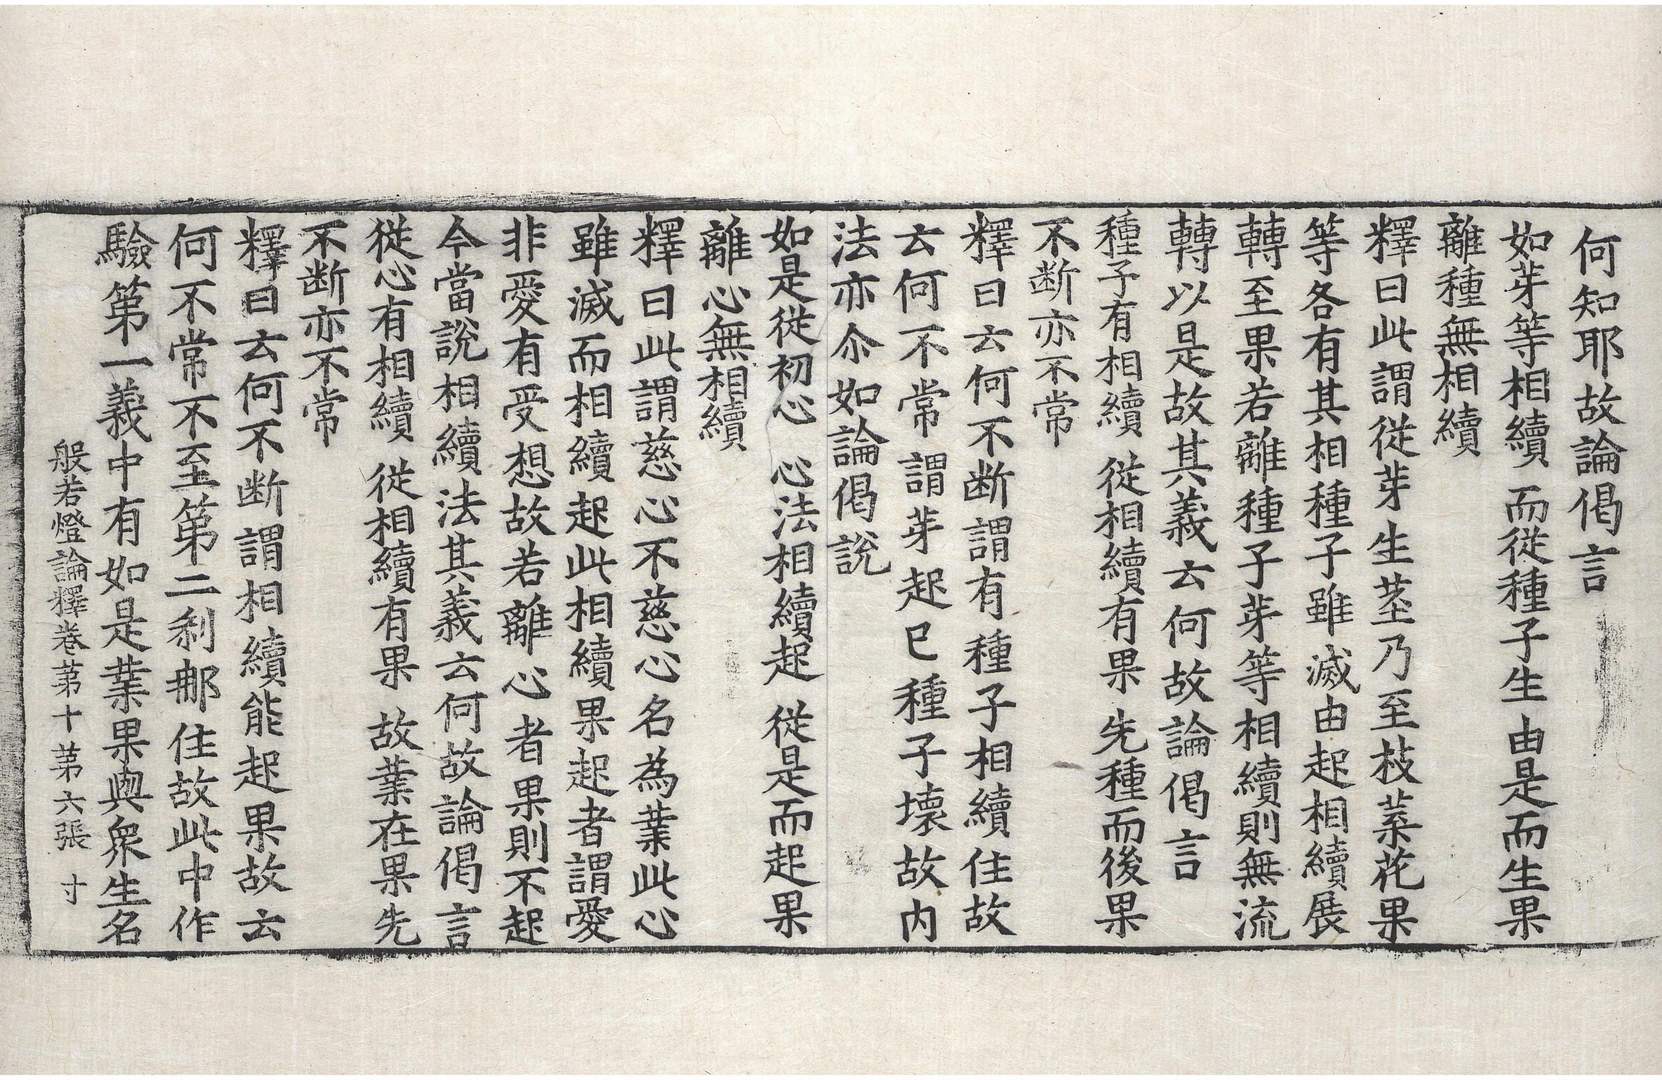 何知耶故論偈言
如芽等相續 而從種子生 由是而生果
離種無相續
釋曰此謂從芽生莖乃至枝葉花果
等各有其相種子雖滅由起相續展
轉至果若離種子芽等相續則無流
轉以是故其義云何故論偈言
種子有相續 從相續有果 先種而後果
不断亦不常
釋曰云何不断謂有種子相續住故
云何不常謂芽起已種子壞故内
法亦尒如論偈說
如是從初心 心法相續起 從是而起果
離心無相續
釋曰此謂慈心不慈心名為業此心
雖滅而相續起此相續果起者謂愛
非愛有受想故若離心者果則不起
今當說相續法其義云何故論偈言
從心有相續 從相續有果 故業在果先
不断亦不常
釋曰云何不断謂相續能起果故云
何不常不至第二刹那住故此中作
驗第一義中有如是業果與衆生名
般若燈論釋卷苐十 苐六張 寸